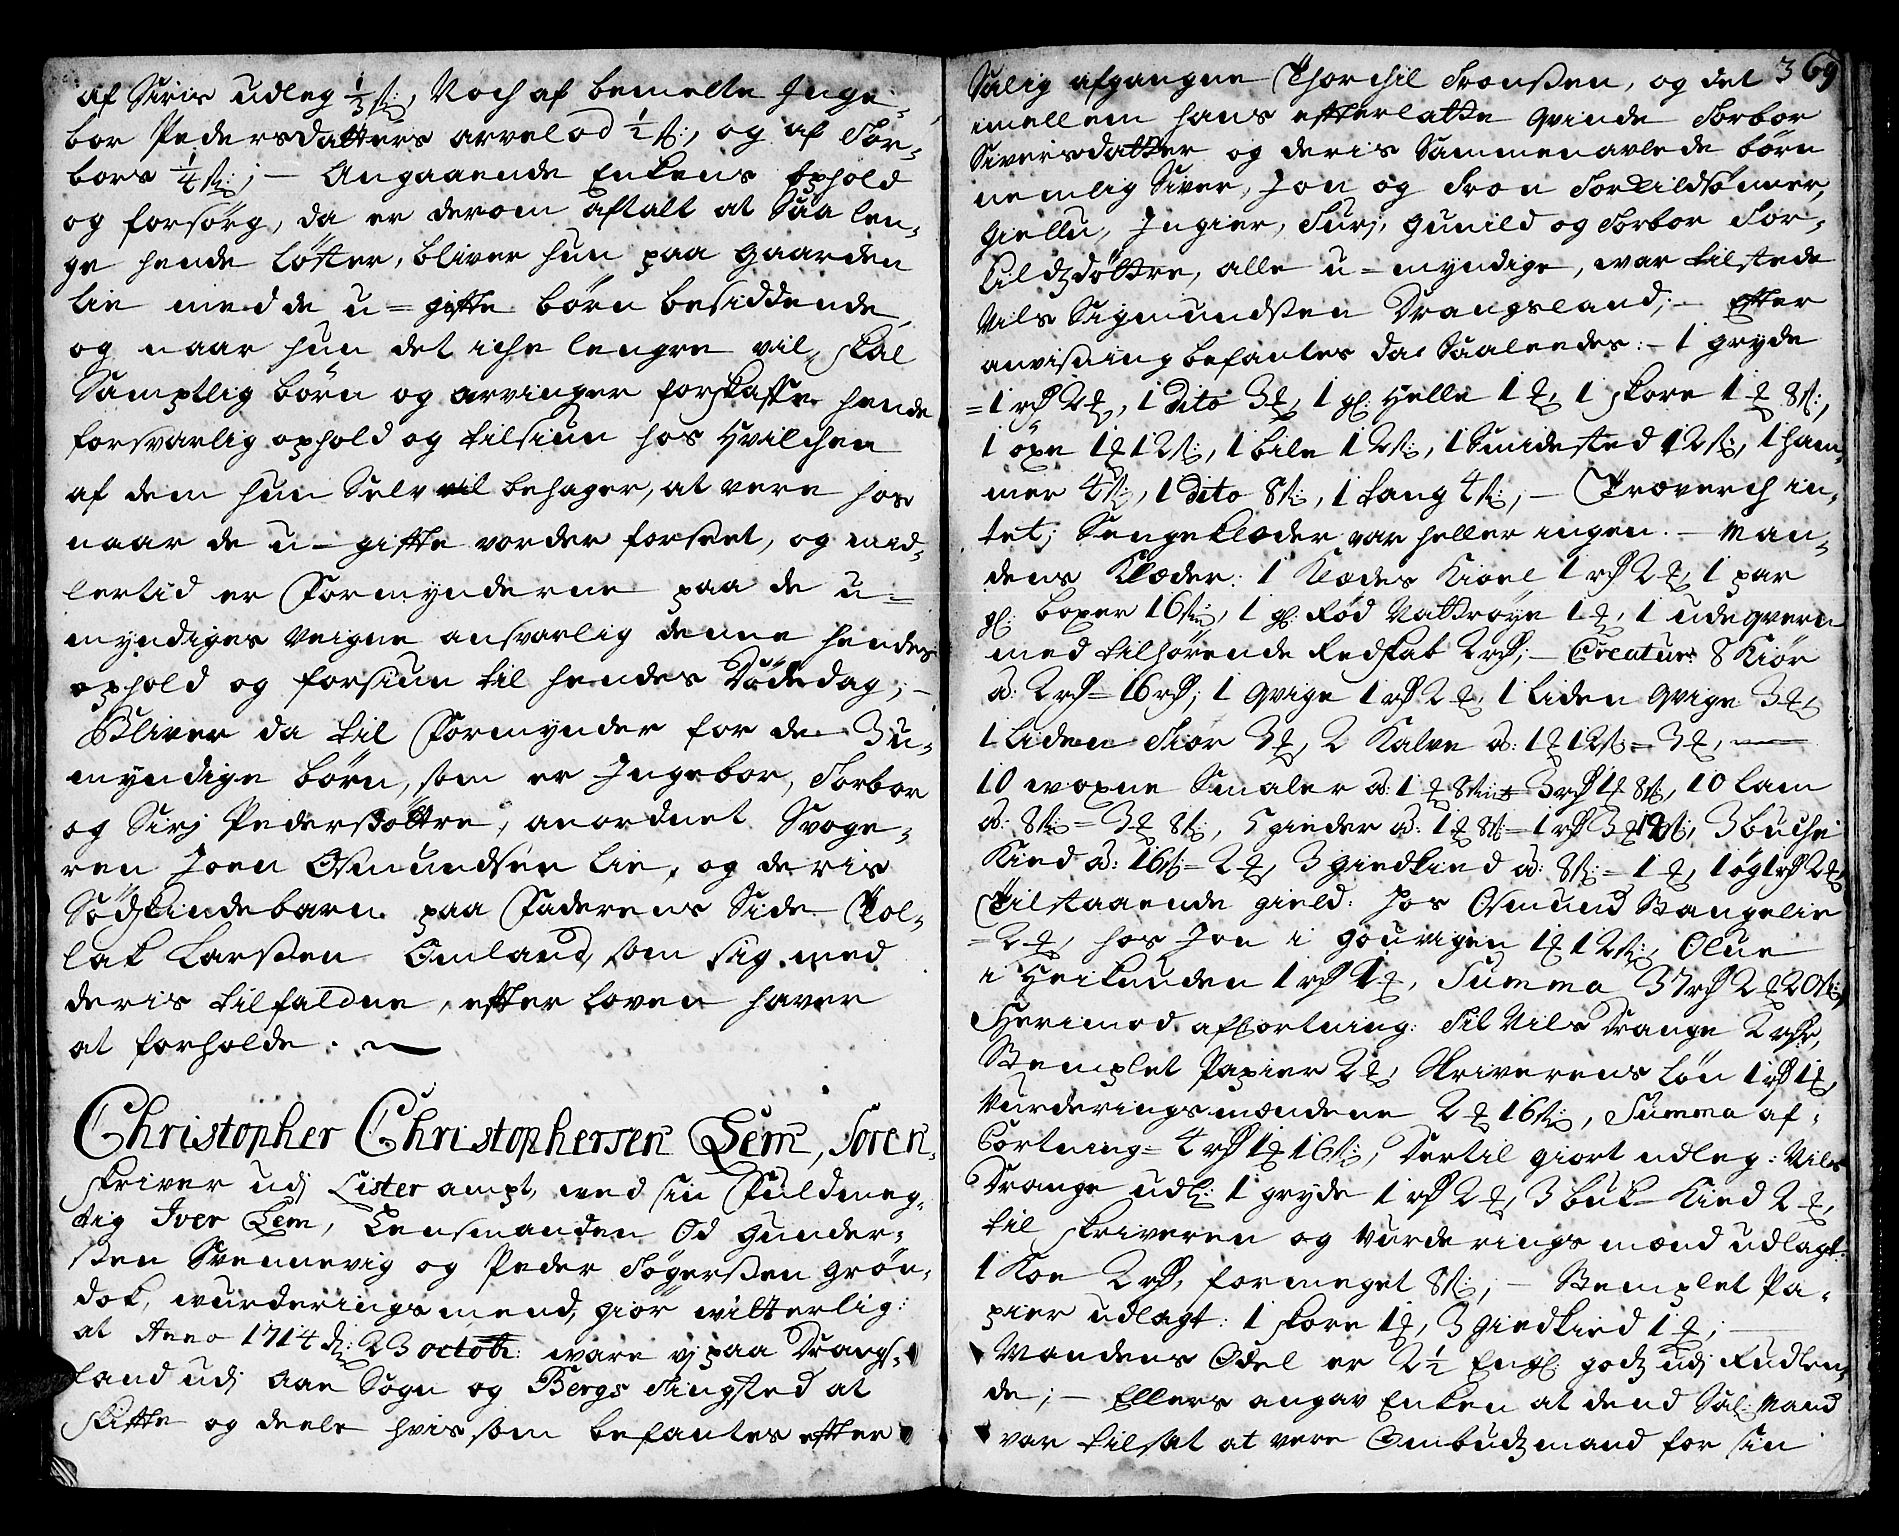 af Siris udleg 1/3 ß:, Noch af bemelte Inge-
bor Pedersdatters arvelod 1/2 ß:, og af Tor-
bors 1/4 ß:; - Angaaende Enkens ophold
og forsørg, da er derom aftalt at Saa len-
ge hende løster, bliver hun paa gaarden
Lie med de u=gifte børn besiddende,
og naar hun det iche lengre vil, skal
Samptlig børn og arvinger forskaffe hende
forsvarlig ophold og tilsiun hos hvilchen
af dem hun Selv behager, at vere hos
naar de u-gifte vorder forseet, og mid-
lertid er Formynderne paa de u=
myndiges veigne ansvarlig denne hendes
ophold og forsiun til hendes Dødedag; -
Bliver da til Formynder for de 3 u-
myndige børn, som er Ingebor, Torbor
og Sirj Pedersdøttre, anordnet Svoge-
ren Joen Osmundsen Lie, og deris
Sødskindebarn paa Faderens Side Tol-
lak Larssen Omland, som sig med
deris tilfaldne, efter loven haver
at forholde.
Christopher Christophersen Lem, Soren-
skriver udj Lister ampt, med sin Fuldmeg-
tig Iver Lem, Lensmanden Od Gunder-
ssen Svennevig og Peder Tøgerssen Grøn-
dok, wurderingsmend, giør witterlig:
at Anno 1714 d: 23 octobr: ware vj paa Drangs-
land udj Aae Sogn og Bergs Tingsted at
skifte og deele hvis som befantes efter
369
Salig afgangne Thorchil Tronssen, og det
imellem hans efterlatte qvinde Torbor
Siversdatter og deris Sammenavlede børn
nemlig Siver, Jon og Tron Torkildsønner,
Giellu, Ingier, Turj, Gunild og Torbor Tor-
kildzdøttre, alle u=myndige, war tilstede
Nils Sigmundssen Drangsland; - Efter
anvisning befantes da Saaleedes: - 1 gryde
= 1 rd 2 ƶ, 1 dito 3 ƶ, 1 gl: Helle 1 ƶ, 1 skore 1 ƶ 8 ß:,
1 öxe 1 ƶ 12 ß:, 1 bile 12 ß:, 1 Smidested 12 ß:, 1 ham-
mer 4 ß:, 1 dito 8 ß:, 1 tang 4 ß:; - Træverch in-
tet; Sengeklæder var heller ingen. - Man-
dens Klæder: 1 Klædes Kioel 1 rd 2 ƶ, 1 par
gl: boxer 16 ß:, 1 gl: Rød Nattrøye 1 ƶ, 1 udeqvern
med tilhørende Redskab 2 rd; - Creatur: 8 Kiør
à: 2 rd = 16 rd; 1 qvige 1 rd 2 ƶ, 1 liden qvige 3 ƶ,
1 liden Tiør 3 ƶ, 2 Kalve à: 1 ƶ 12 ß = 3 ƶ,
10 woxne Smaler à: 1 ƶ 8 ß = 3 rd 1 ƶ 8 ß:, 10 lam
à: 8 ß: = 3 ƶ 8 ß:, 5 gieder à: 1 ƶ 8 ß = 1 rd 3 ƶ, 3 buche
Kied à: 16 ß = 2 ƶ, 3 giedkied à: 8 ß: = 1 ƶ, 1 øg 1 rd 2 ƶ
Tilstaaende gield: hos Osmund Stangelie
= 2 ƶ, hos Jon i 1 ƶ 12 ß:, Olue
i Heikunden 1 rd 1 ƶ, Summa 37 rd 2 ƶ 20 ß:,
Herimod afkortning: Til Nils Drange 2 rdr,
Stemplet Papier 2 ƶ, Skriverens løn 1 rd 1 ƶ,
Vurderingsmændene 2 ƶ 16 ß:, Summa af-
kortning = 4 rd 1 ƶ 16 ß:, Dertil giort udleg: Nils
Drange udl: 1 gryde 1 rd 2 ƶ, 3 buk-Kied 2 ƶ,
til skriveren og vurderings mænd udlagt:
1 Koe 2 rd, formeget 8 ß:; - Stemplet Pa-
pier udlagt: 1 skore 1 ƶ, 3 giedkied 1 ƶ; -
Mandens Odel er 2 1/2 Engl: godz udj Rudlen-
de; - Ellers angav Enken at dend Sal: Mand
var tilsat at vere Ombudzmand for sin